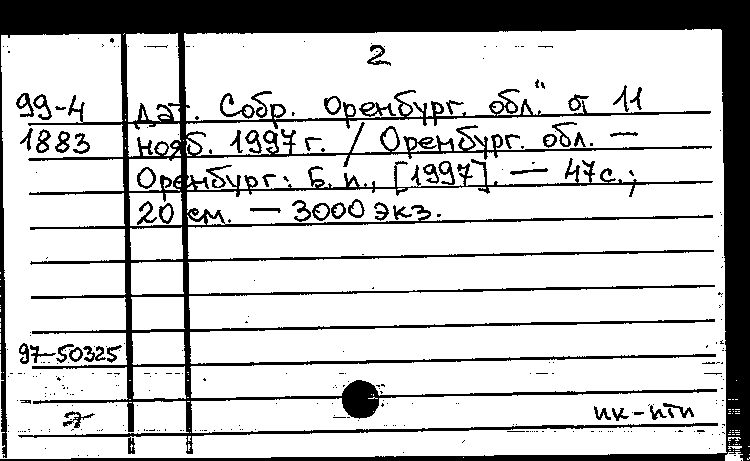 2
99-4 дат. Собр. Оренбург. обл." от 11
1883 нояб. 1997 г. / Оренбург. обл. —
Оренбург: Б. и., [1997]. — 47 с.;
20 см. — 3000 экз.
97-50325
пк-нти